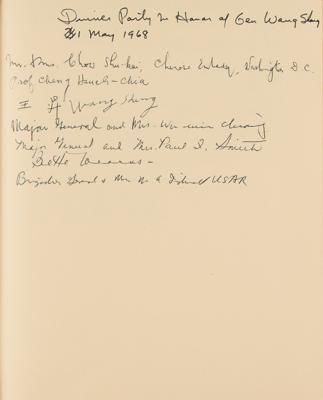 Dinner Party In Honor of Gen Wang Sheng
31 May 1968
Mr. & Mrs. Chow Shu-kai, Chinese Embassy, Washington D.C.
Prof Cheng Hsueh-Chia
Wang Sheng
Major General and Mrs. Wu
Major General and Mrs. Paul
Bette
Brigadier General & Mrs USAR